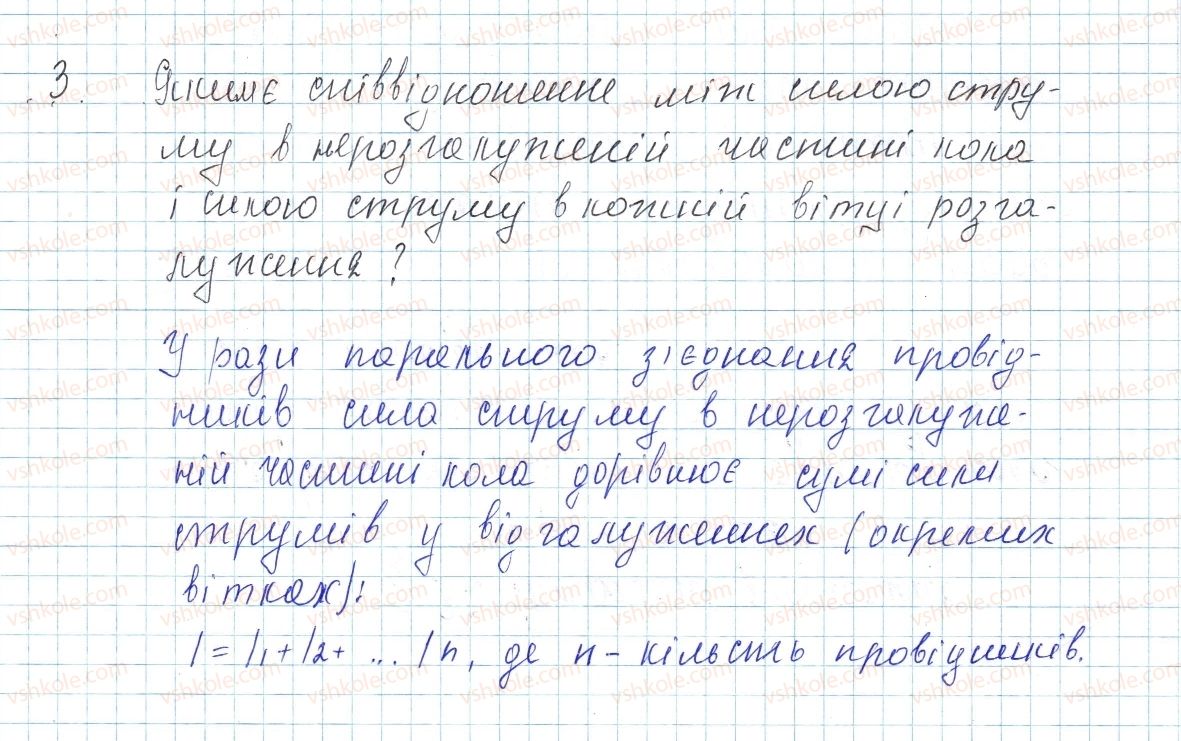 3. Яким є співвідношення між силою стру-
му в нерозгалуженій частині кола
і силою струму в кожній вітці розга-
луження?
У рази парального з'єднання провід-
ників сила струму в нерозгалуже-
ній частині кола дорівнює сумі сили
струмів у відгалуженнях (окремих
вітках):
I = I1 + I2 + ... In, де n - кількість провідників.